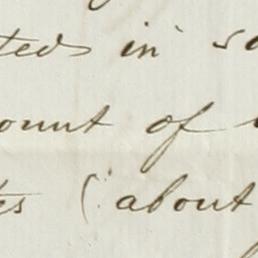 ted in so
ount of
es (about